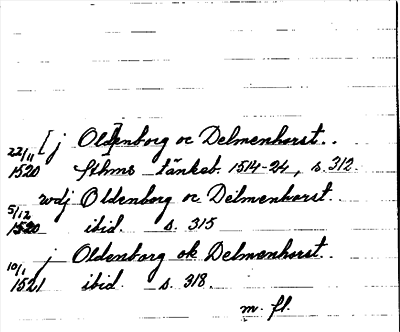 22/11 [j Oldenborg oc Delmenhorst..
1520 Sthms tänkeb. 1514-24, s. 312.
5/12 wdj Oldenborg oc Delmenhorst..
1520 ibid. s. 315
10/1 j Oldenborg ok Delmenhorst..
1521 ibid. s. 318.
m. fl.